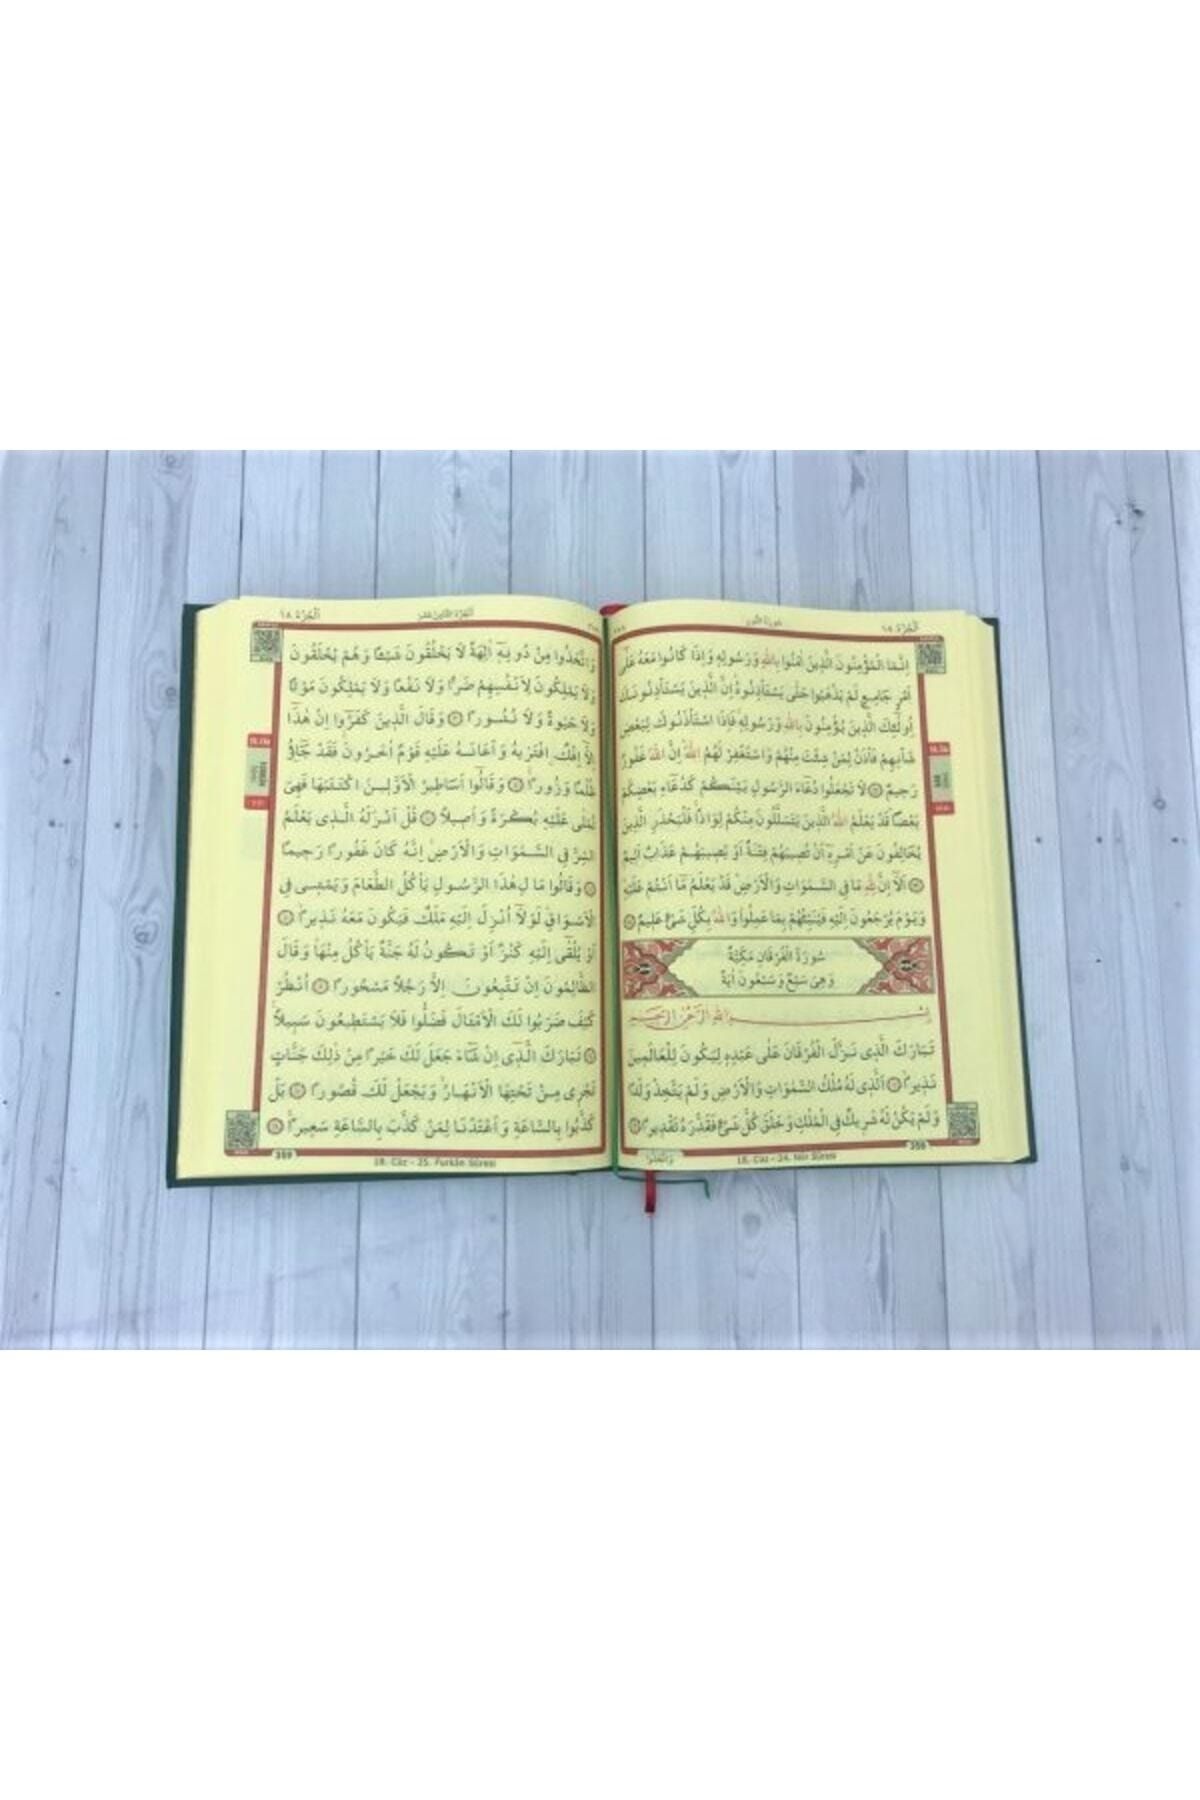 سُورَةُ النُّورِ
اَلْجُزْءُ ١٨
اِنَّمَا الْمُؤْمِنُونَ الَّذِينَ اٰمَنُوا بِاللّٰهِ وَرَسُولِهٖ وَاِذَا كَانُوا مَعَهُ عَلٰٓى
اَمْرٍ جَامِعٍ لَمْ يَذْهَبُوا حَتّٰى يَسْتَأْذِنُوهُ اِنَّ الَّذِينَ يَسْتَأْذِنُونَكَ
اُولٰٓئِكَ الَّذِينَ يُؤْمِنُونَ بِاللّٰهِ وَرَسُولِهٖ فَاِذَا اسْتَأْذَنُوكَ لِبَعْضِ
شَأْنِهِمْ فَأْذَنْ لِمَنْ شِئْتَ مِنْهُمْ وَاسْتَغْفِرْ لَهُمُ اللّٰهَ اِنَّ اللّٰهَ غَفُورٌ
رَحِيمٌ لَا تَجْعَلُوا دُعَاءَ الرَّسُولِ بَيْنَكُمْ كَدُعَاءِ بَعْضِكُمْ
بَعْضًا قَدْ يَعْلَمُ اللّٰهُ الَّذِينَ يَتَسَلَّلُونَ مِنْكُمْ لِوَاذًا فَلْيَحْذَرِ الَّذِينَ
يُخَالِفُونَ عَنْ اَمْرِهٖٓ اَنْ تُصِيبَهُمْ فِتْنَةٌ اَوْ يُصِيبَهُمْ عَذَابٌ اَلِيمٌ
اَلَٓا اِنَّ لِلّٰهِ مَا فِي السَّمٰوَاتِ وَالْاَرْضِ قَدْ يَعْلَمُ مَٓا اَنْتُمْ عَلَيْهِ
وَيَوْمَ يُرْجَعُونَ اِلَيْهِ فَيُنَبِّئُهُمْ بِمَا عَمِلُوا وَاللّٰهُ بِكُلِّ شَيْءٍ عَلِيمٌ
سُورَةُ الْفُرْقَانِ مَكِّيَّةٌ
وَهِيَ سَبْعٌ وَسَبْعُونَ اٰيَةً
بِسْمِ اللّٰهِ الرَّحْمٰنِ الرَّحِيمِ
تَبَارَكَ الَّذِي نَزَّلَ الْفُرْقَانَ عَلٰى عَبْدِهٖ لِيَكُونَ لِلْعَالَمِينَ
نَذِيرًا اَلَّذِي لَهُ مُلْكُ السَّمٰوَاتِ وَالْاَرْضِ وَلَمْ يَتَّخِذْ وَلَدًا
وَلَمْ يَكُنْ لَهُ شَرِيكٌ فِي الْمُلْكِ وَخَلَقَ كُلَّ شَيْءٍ فَقَدَّرَهُ تَقْدِيرًا
وَاتَّخَذُوا
18. Cüz - 24. Nûr Sûresi
اَلْجُزْءُ الثَّامِنَ عَشَرَ
اَلْجُزْءُ ١٨
وَاتَّخَذُوا مِنْ دُونِهٖٓ اٰلِهَةً لَا يَخْلُقُونَ شَيْئًا وَهُمْ يُخْلَقُونَ
وَلَا يَمْلِكُونَ لِاَنْفُسِهِمْ ضَرًّا وَلَا نَفْعًا وَلَا يَمْلِكُونَ مَوْتًا
وَلَا حَيٰوةً وَلَا نُشُورًا وَقَالَ الَّذِينَ كَفَرُوٓا اِنْ هٰذَٓا
اِلَّٓا اِفْكٌ افْتَرٰيهُ وَاَعَانَهُ عَلَيْهِ قَوْمٌ اٰخَرُونَ فَقَدْ جَٓاؤُ
ظُلْمًا وَزُورًا وَقَالُٓوا اَسَاطِيرُ الْاَوَّلِينَ اكْتَتَبَهَا فَهِيَ
تُمْلٰى عَلَيْهِ بُكْرَةً وَاَصِيلًا قُلْ اَنْزَلَهُ الَّذِي يَعْلَمُ
السِّرَّ فِي السَّمٰوَاتِ وَالْاَرْضِ اِنَّهُ كَانَ غَفُورًا رَحِيمًا
وَقَالُوا مَالِ هٰذَا الرَّسُولِ يَأْكُلُ الطَّعَامَ وَيَمْشِي فِي
الْاَسْوَاقِ لَوْلَٓا اُنْزِلَ اِلَيْهِ مَلَكٌ فَيَكُونَ مَعَهُ نَذِيرًا
اَوْ يُلْقٰٓى اِلَيْهِ كَنْزٌ اَوْ تَكُونُ لَهُ جَنَّةٌ يَأْكُلُ مِنْهَا وَقَالَ
الظَّالِمُونَ اِنْ تَتَّبِعُونَ اِلَّا رَجُلًا مَسْحُورًا اُنْظُرْ
كَيْفَ ضَرَبُوا لَكَ الْاَمْثَالَ فَضَلُّوا فَلَا يَسْتَطِيعُونَ سَبِيلًا
تَبَارَكَ الَّذِٓي اِنْ شَٓاءَ جَعَلَ لَكَ خَيْرًا مِنْ ذٰلِكَ جَنَّاتٍ
تَجْرِي مِنْ تَحْتِهَا الْاَنْهَارُ وَيَجْعَلْ لَكَ قُصُورًا بَلْ
كَذَّبُوا بِالسَّاعَةِ وَاَعْتَدْنَا لِمَنْ كَذَّبَ بِالسَّاعَةِ سَعِيرًا
359
18. Cüz - 25. Furkân Sûresi